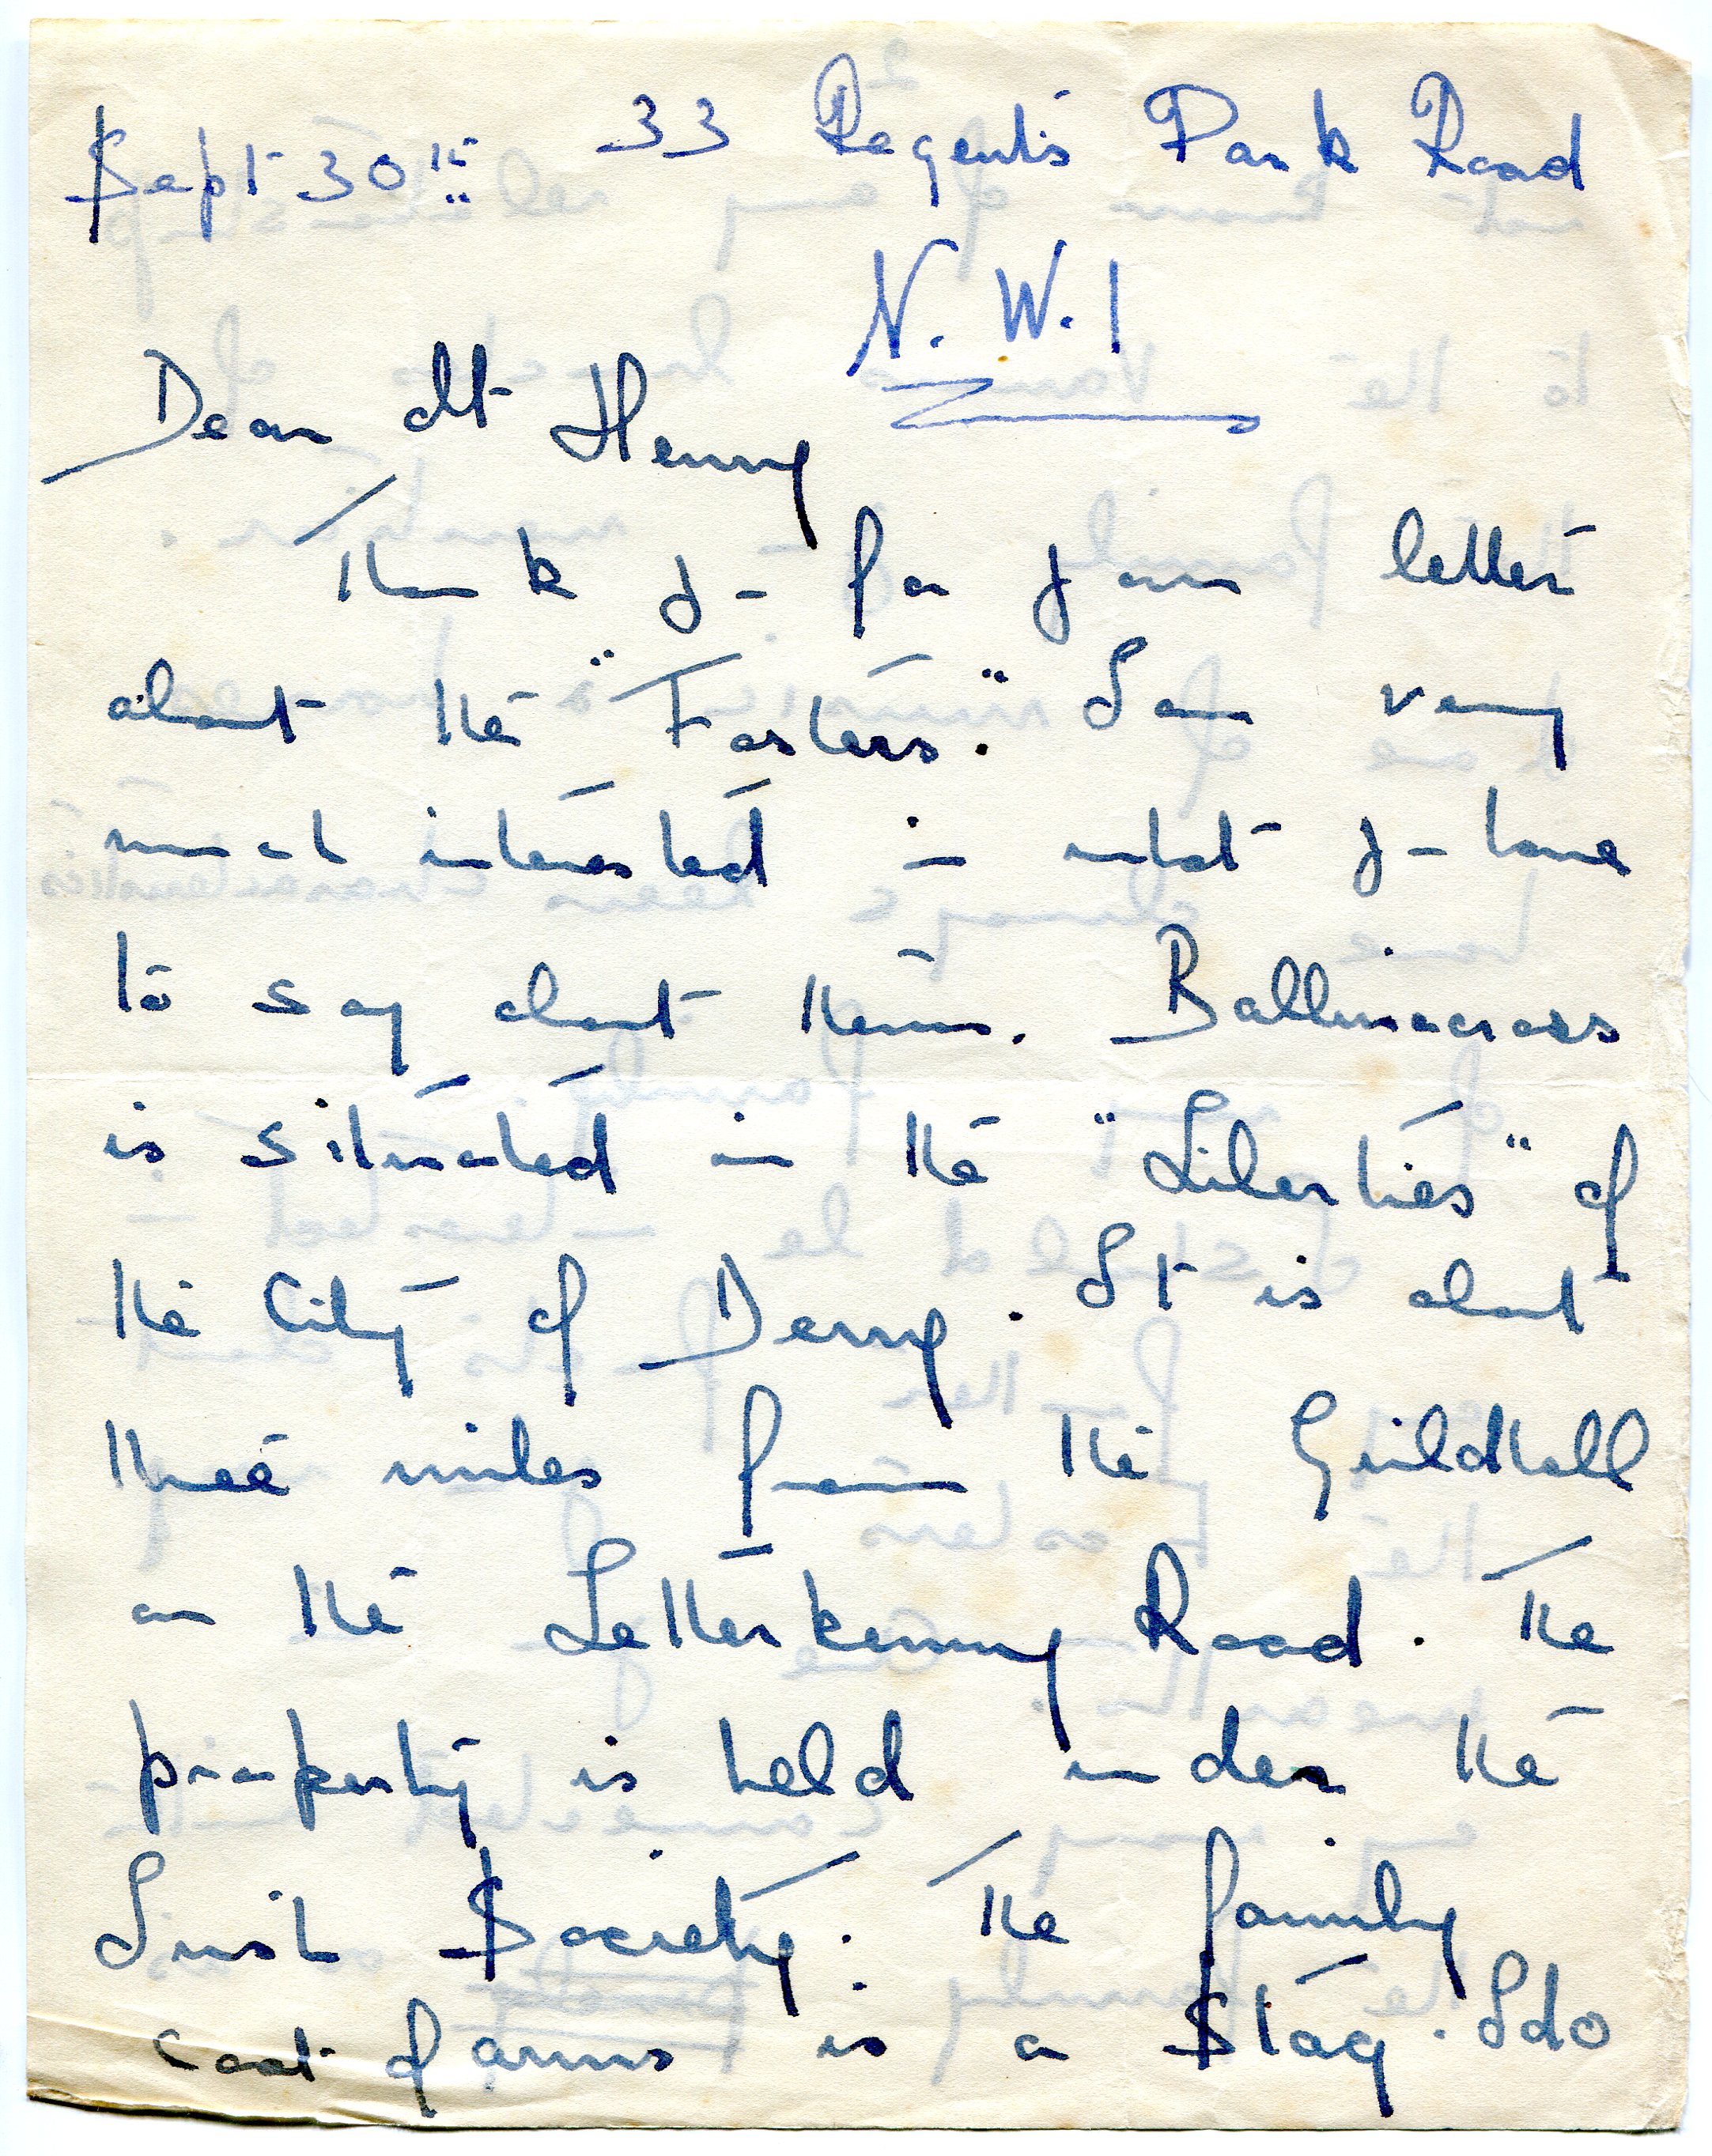 Sept 30th 33 Regent's Park Road
N.W.1
Dear Mr Henry
Thank you for your letter
about the "Fosters". I am very
much interested in what you have
to say about them. Ballinacross
is situated in the "Liberties" of
the City of Derry. It is about
three miles from the Guildhall
on the Letterkenny Road. The
property is held under the
Irish Society. The family
coat of arms is a Stag. I do